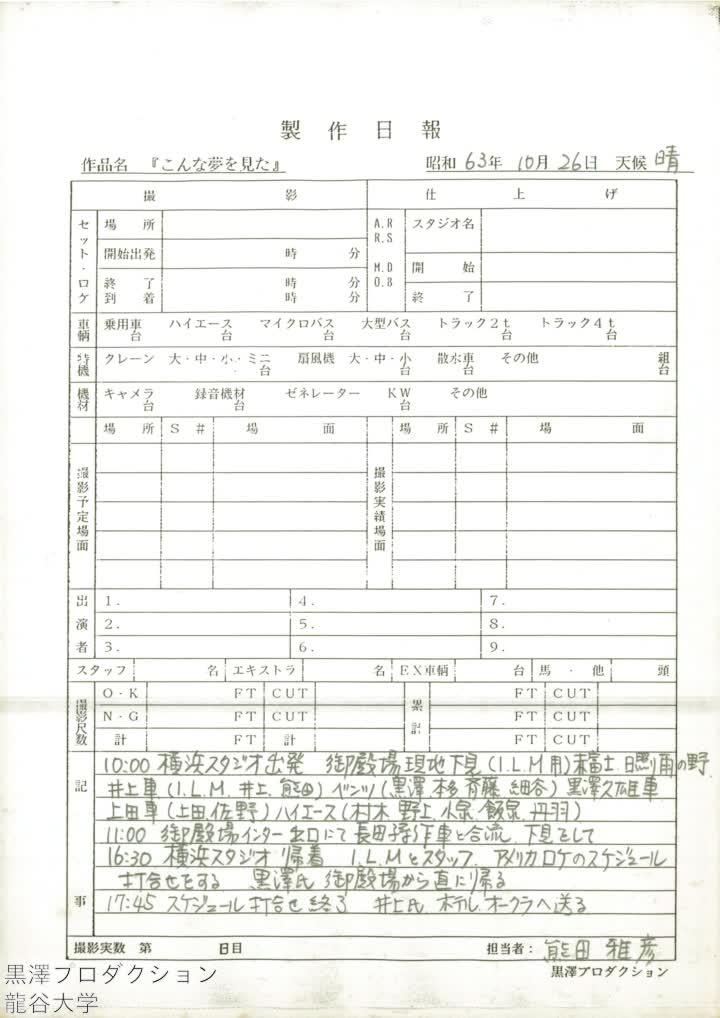 製作日報
作品名 『こんな夢を見た』 昭和63年10月26日 天候 晴
撮影 仕上げ
セット・ロケ 場所 A.R R.S M.D O.B スタジオ名
開始出発 時 分 開始
終了 時 分 終了
到着 時 分
車輌 乗用車 台 ハイエース 台 マイクロバス 台 大型バス 台 トラック2t 台 トラック4t 台
特機 クレーン 大・中・小・ミニ 台 扇風機 大・中・小 台 散水車 台 その他 組 台
機材 キャメラ 台 録音機材 台 ゼネレーター KW 台 その他
撮影予定場面 場所 S# 場面 撮影実績場面 場所 S# 場面
出演者 1. 4. 7.
2. 5. 8.
3. 6. 9.
スタッフ 名 エキストラ 名 EX車輌 台 馬・他 頭
撮影尺数 O・K FT CUT 累計 FT CUT
N・G FT CUT FT CUT
計 FT 計 FT CUT
記事
10:00 横浜スタジオ出発 御殿場現地下見(I.L.M用)赤富士.日照り雨の野
井上車(I.L.M.井上.熊田)ベンツ(黒澤.本多.斉藤.細谷)黒澤久雄車
上田車(上田.佐野)ハイエース(村木.野上.小泉.飯泉.丹羽)
11:00 御殿場インター出口にて長田操作車と合流.下見をして
16:30 横浜スタジオ帰着 I.L.Mとスタッフ.アメリカロケのスケジュール
打合せをする 黒澤氏 御殿場から直に帰る
17:45 スケジュール打合せ終了 井上氏.ホテルオークラへ送る
撮影実数 第 日目 担当者: 熊田雅彦
黒澤プロダクション
黒澤プロダクション
龍谷大学